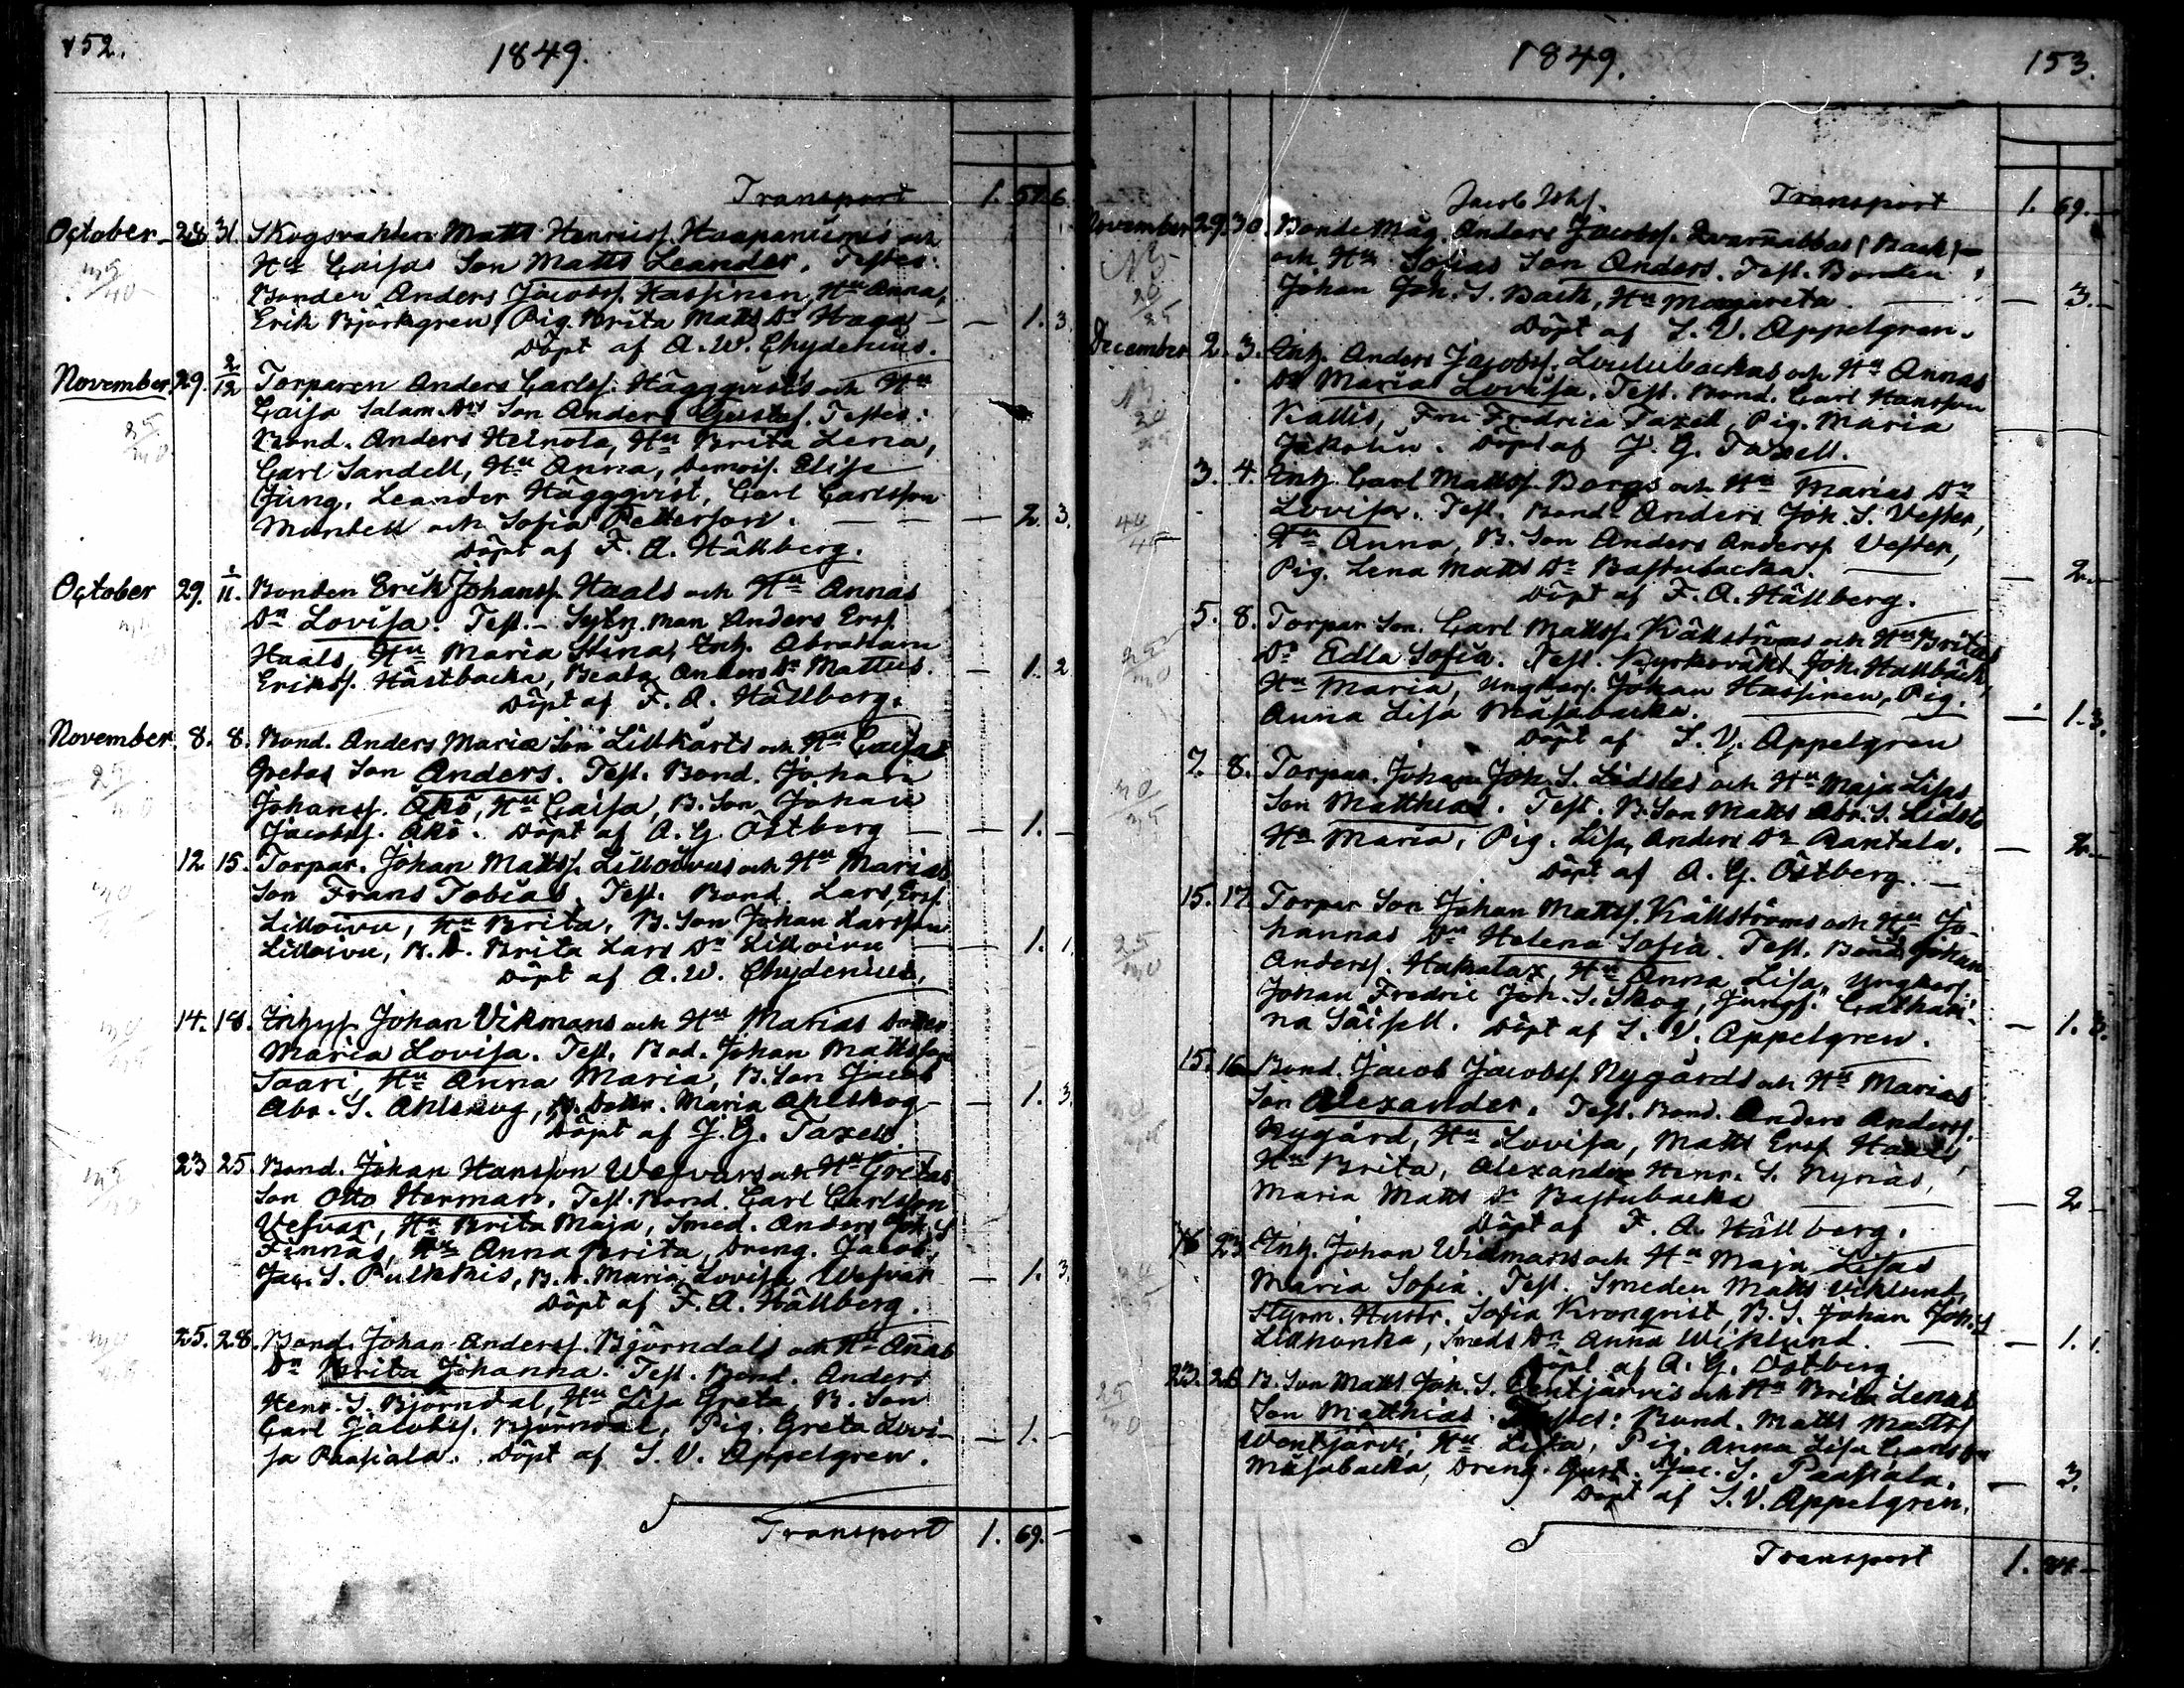 152.
1849.
Transport 1. 57. 6
October 28 31. Skogvakten Matts Henrikss. Haapaniemis och
Hu Caisas Son Matts Leander. Testes:
Bonden Anders Jacobss. Hassinen, Hu Anna,
Erik Björkgren, Pig. Brita Matts Dr Haga — — 1. 3.
Döpt af A. W. Chydenius.
November 29. 2/12 Torparen Anders Carlss. Häggqvists och Hu
Caisa Salam. Drs Son Anders Gustaf. Testes:
Bond. Anders Heinola, Hu Brita Lena,
Carl Sandell, Hu Anna, Demois. Elise
Ljung, Leander Häggqvist, Carl Carlsson
Mantell och Sofia Petterson. — — — 2. 3.
Döpt af F. A. Hällberg.
October 29. 1/11. Bonden Erik Johanss. Haals och Hu Annas
Dr Lovisa. Test. Sexm. man Anders Erss.
Haals, Hu Maria Stina, Inh. Abraham
Erikss. Hästbacka, Beata Anders Dr Mattus. — 1. 2
Döpt af F. A. Hällberg.
November. 8. 8. Bond. Anders Maria Son Lillkårts och Hu Caisa
Gretas Son Anders. Test. Bond. Johan
Johanss. Åkö, Hu Caisa, B. Son Johan
Jacobss. Åkö. Döpt af A. G. Östberg — — 1. —
12 15. Torpar. Johan Mattss. Lilloivus och Hu Marias
Son Frans Tobias. Test. Bond. Lars Ersf.
Lilloivu, Hu Brita, B. Son Johan Larsson
Lilloivu, B. D. Brita Lars Dr Lilloivu — — 1. 1.
Döpt af A. W. Chydenius.
14. 18. Inhys. Johan Vikmans och Hu Marias Dotter
Maria Lovisa. Test. Bond. Johan Mattsson
Saari, Hu Anna Maria, B. Son Jacob
Abr. S. Ahlskog, B. Dottr. Maria Ahlskog — — 1. 3.
Döpt af J. G. Taxell.
23 25. Bond. Johan Hansson Wefvars och Hu Gretas
Son Otto Herman. Test. Bond. Carl Carlsson
Vefvar, Hu Brita Maja, Smed. Anders Joh. S
Finnäs, Hu Anna Brita, Dreng. Jacob
Jac. S. Pulkkis, B. D. Maria Lovisa Wefvar — 1. 3.
Döpt af F. A. Hällberg.
25. 28. Bond. Johan Anderss. Björndals och Hu Annas
Dr Brita Johanna. Test. Bond. Anders
Henr. S. Björndal, Hu Lisa Greta, B. Son
Carl Jacobss. Björndal, Pig. Greta Lovi- — 1. —
sa Paasiala. Döpt af S. V. Appelgren.
Transport 1. 69. —
1849. 153.
Jacob Johs. Transport 1. 69. —
November 29. 30. Bonde Måg. Anders Jacobss. Qvarnabbas (Back)
och Hu Sofias Son Anders. Test. Bonden
Johan Joh. S. Back, Hu Margareta. — — 3. —
Döpt af S. V. Appelgren.
December 2. 3. Inh. Anders Jacobss. Loulubackas och Hu Annas
Dr Maria Lovisa. Test. Bond. Carl Hansson
Kallis, Fru Fredrica Taxell, Pig. Maria
Jakolin. Döpt af J. G. Taxell.
3. 4. Inh. Carl Mattss. Borgs och Hu Marias Dr
Lovisa. Test. Bond. Anders Joh. S. Vester,
Hu Anna, B. Son Anders Anderss. Vester,
Pig. Lena Matts Dr Bastubacka. — — 2. —
Döpt af F. A. Hällberg.
5. 8. Torpar Son. Carl Mattss. Källströms och Hu Britas
Dr Edla Sofia. Test. Kyrkovakt. Joh. Hallbäck,
Hu Maria, Ungkarl. Johan Hassinen, Pig.
Anna Lisa Måsabacka. — — 1. 3.
Döpt af S. V. Appelgren
7. 8. Torpar. Johan Joh. S. Lidstes och Hu Maja Lisas
Son Matthias. Test. B. Son Matts Abr. S. Lidst
Hu Maria, Pig. Lisa Anders Dr Rantala. — 2. —
Döpt af A. G. Östberg. —
15. 17. Torpar Son Johan Mattss. Källströms och Hu Jo-
hannas Dr Helena Sofia. Test. Bond. Johan
Anderss. Hakalax, Hu Anna Lisa, Ungkarl
Johan Fredric Joh. S. Skog, Jungf. Cathari-
na Säisell. Döpt af S. V. Appelgren. — 1. 3.
15. 16. Bond. Jacob Jacobss. Nygårds och Hu Marias
Son Alexander. Test. Bond. Anders Anderss.
Nygård, Hu Lovisa, Matts Ersf. Haals,
Hu Brita, Alexander Henr. S. Nynäs,
Maria Matts Dr Bastubacka — — 2 —
Döpt af F. A. Hällberg.
16 23 Inh. Johan Widmans och Hu Maja Lisas
Maria Sofia. Test. Smeden Matts Viklund,
Styrm. Hustr. Sofia Kronqvist, B. S. Johan Joh. S
Lillhonka, Smeds Dr Anna Wiklund. — 1. 1.
Döpt af A. G. Östberg
23. 26 B. Son Matts Joh. S. Wentjärvis och Hu Brita Lenas
Son Matthias. Testes: Bond. Matts Mattss
Wentjärvi, Hu Lisa, Pig. Anna Lisa Carlsson
Måsabacka, Dreng. Gust. Jac. S. Paasiala. — 3.
Döpt af S. V. Appelgren.
Transport 1. 84 —